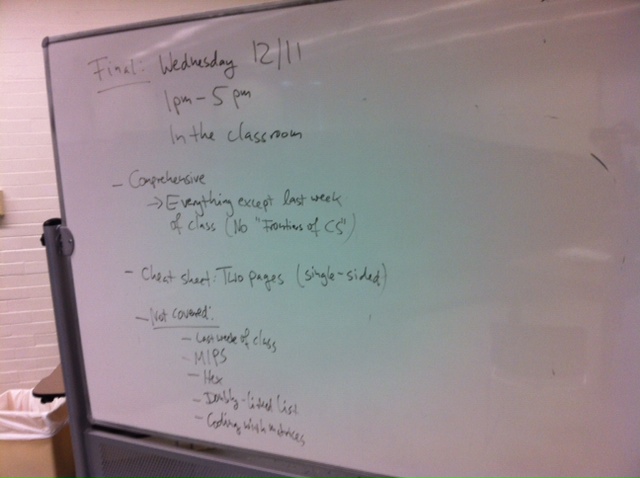 Final: Wednesday 12/11
1pm - 5pm
In the classroom
- Comprehensive
→ Everything except last week
of class (No "Frontiers of CS")
- Cheat sheet: Two pages (single-sided)
- Not covered:
- Last week of class
- MIPS
- Hex
- Doubly-linked list
- Coding with matrices